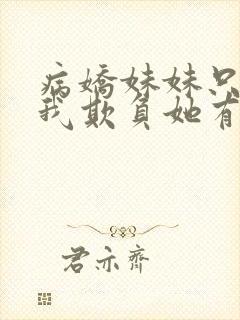 病嬌妹妹只
我欺負她有
君亦齊